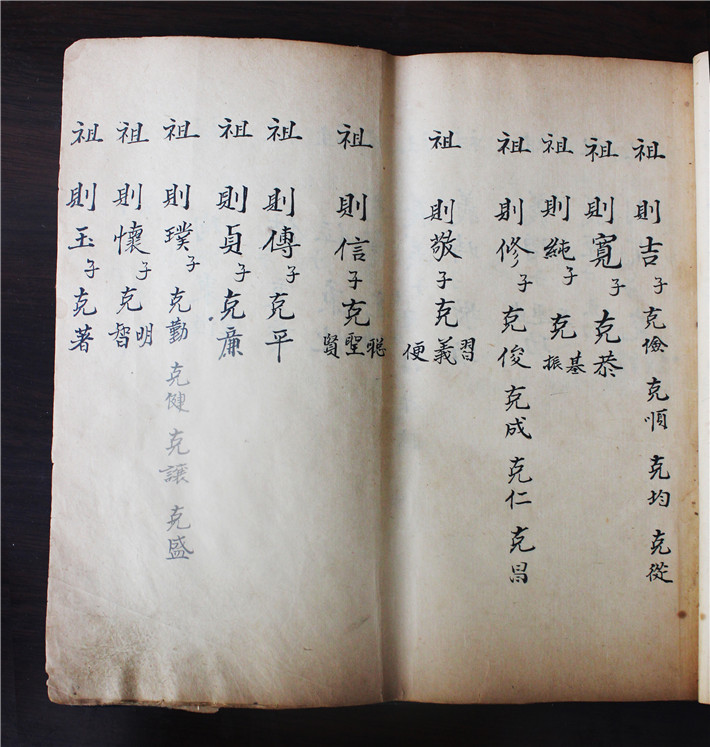 祖 則吉子 克儉 克順 克均 克從
祖 則寬子 克恭
祖 則純子 克基振
祖 則修子 克俊 克成 克仁 克昌
祖 則敬子克習義便
祖 則信子克聰聖賢
祖 則傳子克平
祖 則貞子克廉
祖 則璞子 克勤 克健 克讓 克盛
祖 則懷子克明智
祖 則玉子克著